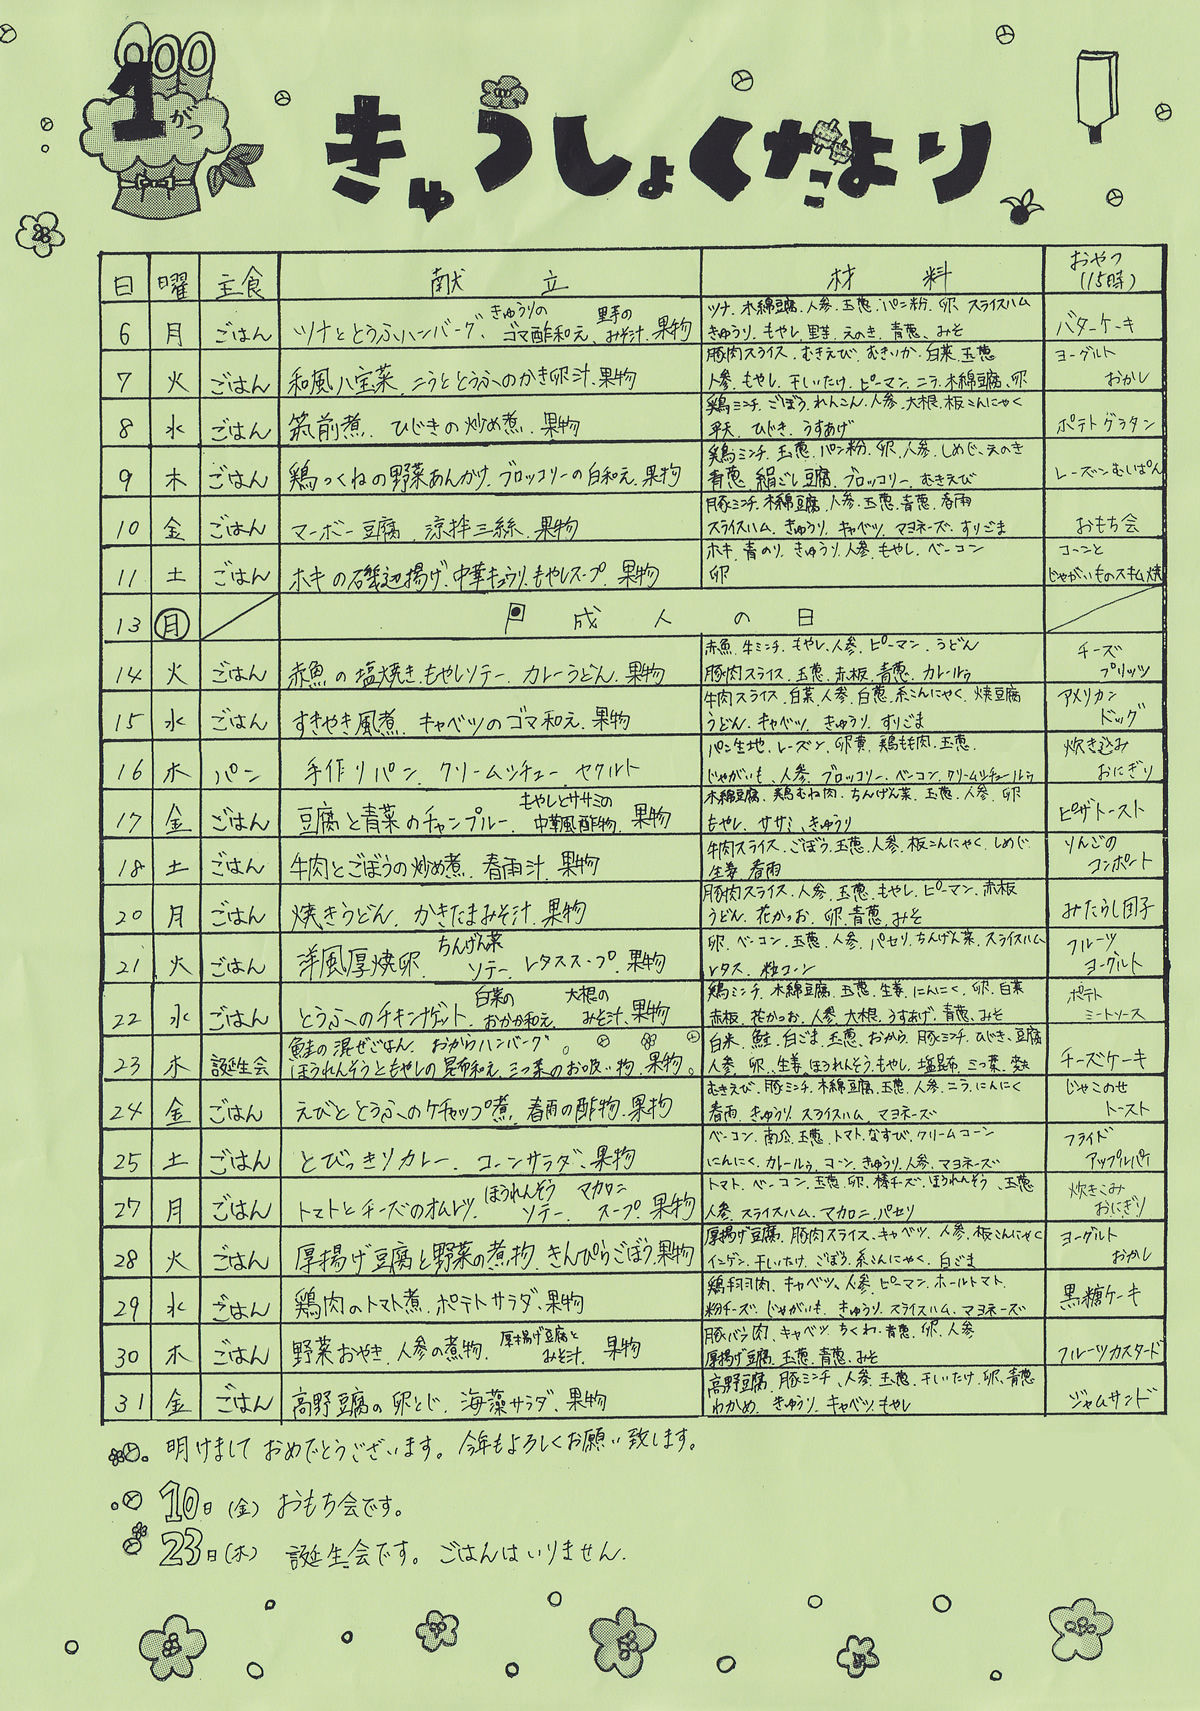 1がつ
きゅうしょくだより
日 曜 主食 献立 材料 おやつ(15時)
6 月 ごはん ツナととうふハンバーグ、きゅうりのゴマ酢和え、里芋のみそ汁、果物 ツナ、木綿豆腐、人参、玉葱、パン粉、卵、スライスハム きゅうり、もやし、里芋、えのき、青葱、みそ バターケーキ
7 火 ごはん 和風八宝菜、ニラととうふのかき卵汁、果物 豚肉スライス、むきえび、むきいか、白菜、玉葱 人参、もやし、干しいたけ、ピーマン、ニラ、木綿豆腐、卵 ヨーグルト おかし
8 水 ごはん 筑前煮、ひじきの炒め煮、果物 鶏ミンチ、ごぼう、れんこん、人参、大根、板こんにゃく 平天、ひじき、うすあげ ポテトグラタン
9 木 ごはん 鶏つくねの野菜あんかけ、ブロッコリーの白和え、果物 鶏ミンチ、玉葱、パン粉、卵、人参、しめじ、えのき 青葱、絹ごし豆腐、ブロッコリー、むきえび レーズンむしぱん
10 金 ごはん マーボー豆腐、涼拌三絲、果物 豚ミンチ、木綿豆腐、人参、玉葱、青葱、春雨 スライスハム、きゅうり、キャベツ、マヨネーズ、すりごま おもち会
11 土 ごはん ホキの磯辺揚げ、中華キュウリ、もやしスープ、果物 ホキ、青のり、きゅうり、人参、もやし、ベーコン 卵 コーンと じゃがいものスキム焼
13 月 成人の日
14 火 ごはん 赤魚の塩焼き、もやしソテー、カレーうどん、果物 赤魚、牛ミンチ、もやし、人参、ピーマン、うどん 豚肉スライス、玉葱、赤板、青葱、カレールゥ チーズ プリッツ
15 水 ごはん すきやき風煮、キャベツのゴマ和え、果物 牛肉スライス、白菜、人参、白葱、糸こんにゃく、焼豆腐 うどん、キャベツ、きゅうり、すりごま アメリカン ドッグ
16 木 パン 手作りパン、クリームシチュー、ヤクルト パン生地、レーズン、卵黄、鶏もも肉、玉葱、 じゃがいも、人参、ブロッコリー、ベーコン、クリームシチュールゥ 炊き込み おにぎり
17 金 ごはん 豆腐と青菜のチャンプルー、もやしとササミの中華風酢物、果物 木綿豆腐、鶏むね肉、ちんげん菜、玉葱、人参、卵 もやし、ササミ、きゅうり ピザトースト
18 土 ごはん 牛肉とごぼうの炒め煮、春雨汁、果物 牛肉スライス、ごぼう、玉葱、人参、板こんにゃく、しめじ 生姜、春雨 りんごの コンポート
20 月 ごはん 焼きうどん、かきたまみそ汁、果物 豚肉スライス、人参、玉葱、もやし、ピーマン、赤板 うどん、花かつお、卵、青葱、みそ みたらし団子
21 火 ごはん 洋風厚焼卵、ちんげん菜ソテー、レタススープ、果物 卵、ベーコン、玉葱、人参、パセリ、ちんげん菜、スライスハム レタス、粒コーン フルーツ ヨーグルト
22 水 ごはん とうふのチキンナゲット、白菜のおかか和え、大根のみそ汁、果物 鶏ミンチ、木綿豆腐、玉葱、生姜、にんにく、卵、白菜 赤板、花かつお、人参、大根、うすあげ、青葱、みそ ポテト ミートソース
23 木 誕生会 鮭の混ぜごはん、おからハンバーグ。 ほうれんそうともやしの昆布和え、三つ葉のお吸い物、果物。 白米、鮭、白ごま、玉葱、おから、豚ミンチ、ひじき、豆腐 人参、卵、生姜、ほうれんそう、もやし、塩昆布、三つ葉、麩 チーズケーキ
24 金 ごはん えびととうふのケチャップ煮、春雨の酢物、果物 むきえび、豚ミンチ、木綿豆腐、玉葱、人参、ニラ、にんにく 春雨、きゅうり、スライスハム、マヨネーズ じゃこのせ トースト
25 土 ごはん とびっきりカレー、コーンサラダ、果物 ベーコン、南瓜、玉葱、トマト、なすび、クリームコーン にんにく、カレールゥ、コーン、きゅうり、人参、マヨネーズ フライド アップルパイ
27 月 ごはん トマトとチーズのオムレツ、ほうれんそうソテー、マカロニスープ、果物 トマト、ベーコン、玉葱、卵、棒チーズ、ほうれんそう、玉葱 人参、スライスハム、マカロニ、パセリ 炊きこみ おにぎり
28 火 ごはん 厚揚げ豆腐と野菜の煮物、きんぴらごぼう、果物 厚揚げ豆腐、豚肉スライス、キャベツ、人参、板こんにゃく インゲン、干しいたけ、ごぼう、糸こんにゃく、白ごま ヨーグルト おかし
29 水 ごはん 鶏肉のトマト煮、ポテトサラダ、果物 鶏羽肉、キャベツ、人参、ピーマン、ホールトマト、 粉チーズ、じゃがいも、きゅうり、スライスハム、マヨネーズ 黒糖ケーキ
30 木 ごはん 野菜おやき、人参の煮物、厚揚げ豆腐とみそ汁、果物 豚バラ肉、キャベツ、ちくわ、青葱、卵、人参 厚揚げ豆腐、玉葱、青葱、みそ フルーツカスタード
31 金 ごはん 高野豆腐の卵とじ、海藻サラダ、果物 高野豆腐、豚ミンチ、人参、玉葱、干しいたけ、卵、青葱 わかめ、きゅうり、キャベツ、もやし ジャムサンド
明けましておめでとうございます。今年もよろしくお願い致します。
10日(金) おもち会です。
23日(木) 誕生会です。ごはんはいりません。